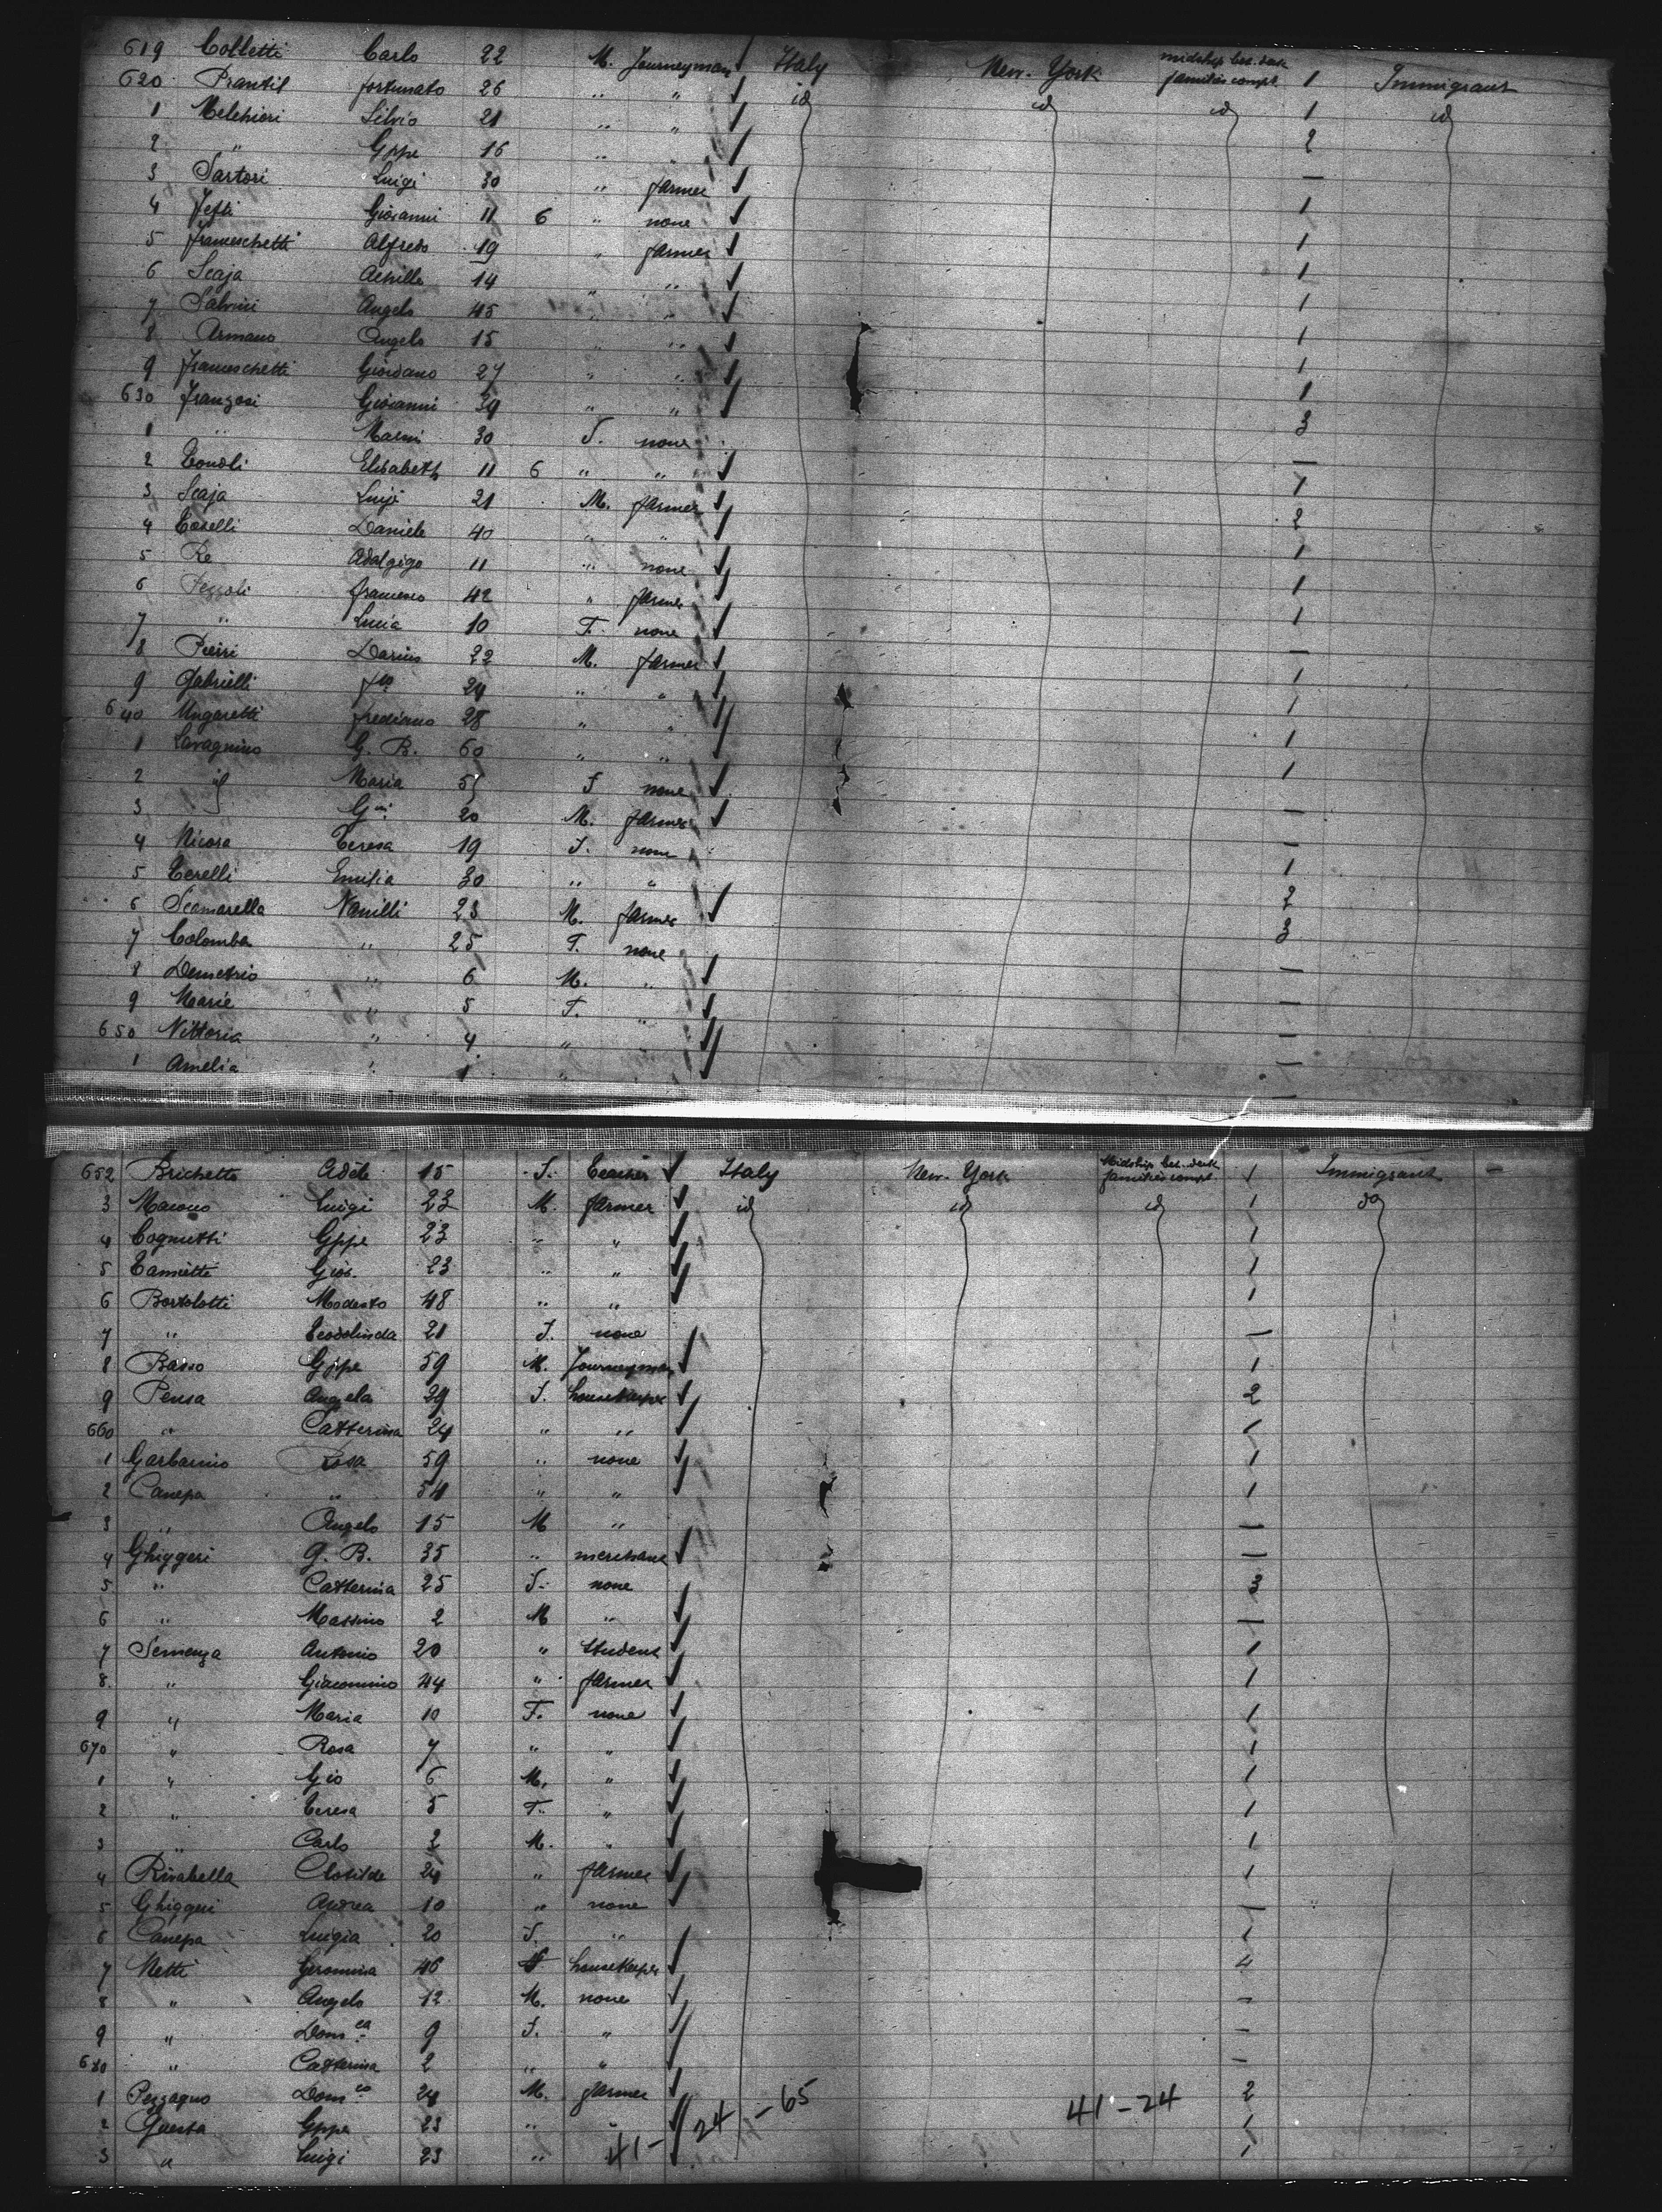 619 Colletti Carlo 22 M. Journeyman Italy New. York midship bet. deck families compt. 1 Immigrant
620 Prantil fortunato 26 " " id id id 1 id
1 Melchiori Silvio 21 " " 2
2 " Gppe 16 " " —
3 Sartori Luigi 30 " farmer 1
4 Giovanni 11 6 " none 1
5 franceschetti Alfredo 19 " farmer 1
6 Scaja Achille 14 " " 1
7 Salvini Angelo 45 " " 1
8 Armano Angelo 15 " " 1
9 franceschetti Giordano 27 " " 1
630 franzosi Giovanni 39 " " 3
1 " 30 F. none —
2 Elisabeth 11 6 " " 1
3 Scaja Luigi 21 M. farmer 2
4 Coselli Daniele 40 " " 1
5 Re Adalgigo 11 " none 1
6 Pezzoli francesco 42 " farmer 1
7 " Lucia 10 F. none —
8 Pieri Darius 22 M. farmer 1
9 Gabrielli 24 " " 1
640 Ungaretti frediano 28 " " 1
1 Lavagnino G. B. 60 " " 1
2 id Maria 5 F none —
3 Gni 20 M. farmer —
4 Nicora Teresa 19 F. none 1
5 Cerelli Emilia 30 " " 2
6 Scamarella Nanilli 23 M. farmer 3
7 Colomba " 25 F. none —
8 Demetrio " 6 M. " —
9 Marie " 5 F. " —
650 Vittoria " 4 " " —
1 Amelia " 1 " " —
652 Brichetto Adele 15 F. Teacher Italy New. York Midship bet. deck families compt. 1 Immigrant —
3 Luigi 23 M. farmer id id id 1 do
4 Cognetti Gppe 23 " " 1
5 Gios. 23 " " 1
6 Bortolotti Modesto 48 " " 1
7 " Teodolinda 21 F. none —
8 Basso Gppe 59 M. Journeyman 1
9 Pensa Angela 29 F. housekeeper 2
660 " Catterina 24 " " 1
1 Garbarino Rosa 59 " none 1
2 Canepa " 54 " " 1
3 " Angelo 15 M " —
4 Ghiggeri G. B. 35 " merchant —
5 " Catterina 25 F. none 3
6 " Massimo 2 M " —
7 Semenza Antonio 20 " student 1
8. " Giacomino 44 " farmer 1
9 " Maria 10 F. none 1
670 " Rosa 7 " " 1
1 " Gio 6 M. " 1
2 " Teresa 5 F. " 1
3 " Carlo 2 M. " 1
4 Rivabella Clotilde 24 " farmer 1
5 Ghiggeri Andrea 10 " none —
6 Canepa Luigia 20 F. " 1
7 Netti Geromina 46 F housekeeper 4
8 " Angelo 12 M. none —
9 " Domca 9 F. " —
680 " Catterina 2 " " —
1 Pezzagno Domco 24 M. farmer 2
2 Questa Gppe 23 " " 1
3 " Luigi 23 " 1
41- 24 - 65 41 - 24